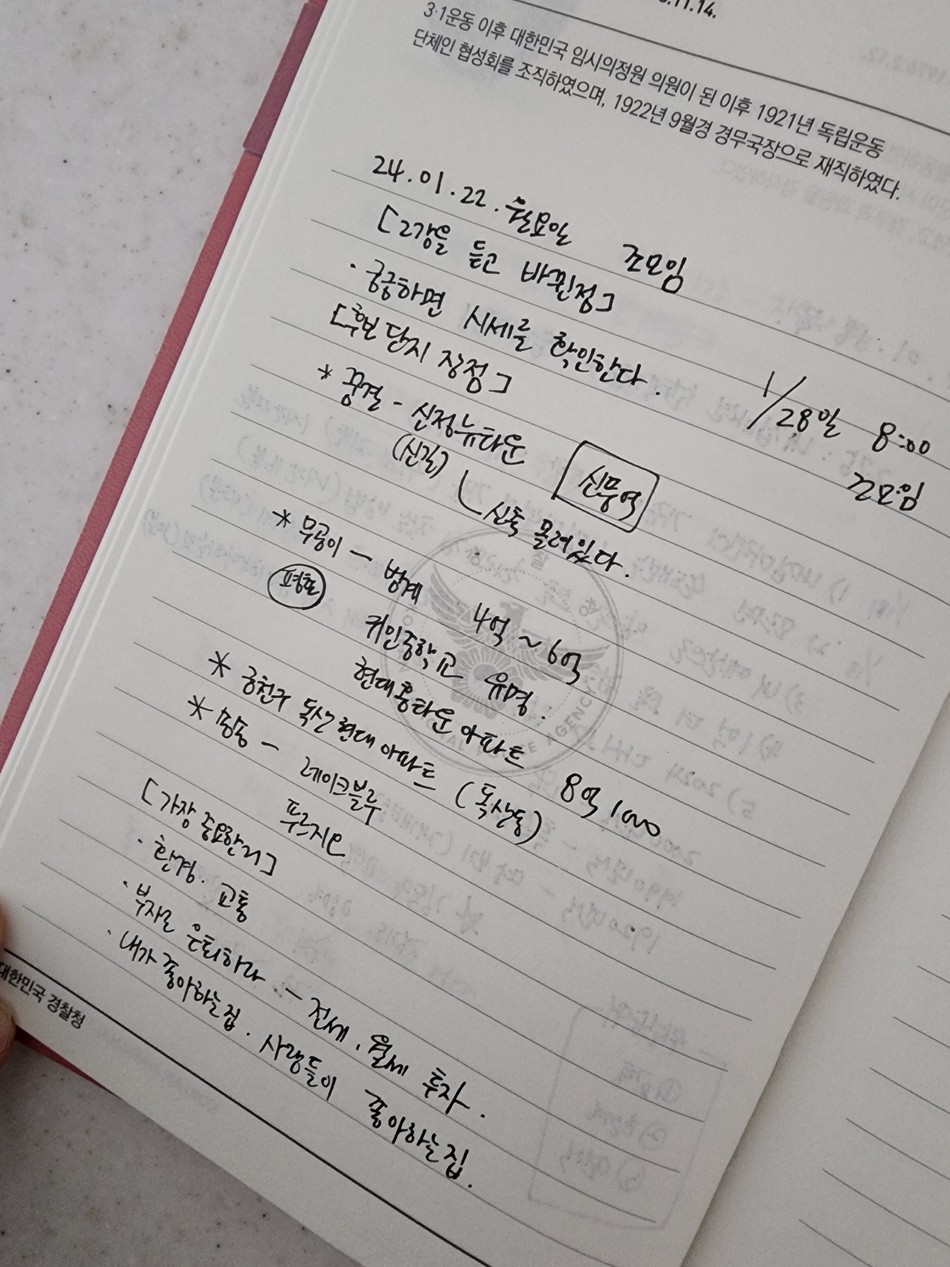 .11.14.
3·1운동 이후 대한민국 임시의정원 의원이 된 이후 1921년 독립운동
단체인 협성회를 조직하였으며, 1922년 9월경 경무국장으로 재직하였다.
24.01.22. 월요일 조모임
[2강을 듣고 바뀐점]
· 궁금하면 시세를 확인한다.
1/28일 8:00
조모임
[후보 단지 장정]
* 꿈결 - 신정뉴타운 신풍역
(신길) 신축 몰려있다.
* 무공이 - 범계 4억 ~ 6억
평촌 귀인중학교 유명.
현대홈타운아파트 8억 1000
* 금천구 독산현대아파트 (독산동)
* - 레이크블루
푸르지오
[가장 중요한거]
· 환경. 교통
· 부자로 은퇴하라 - 전세, 월세 투자.
· 내가 좋아하는집. 사람들이 좋아하는집.
대한민국 경찰청